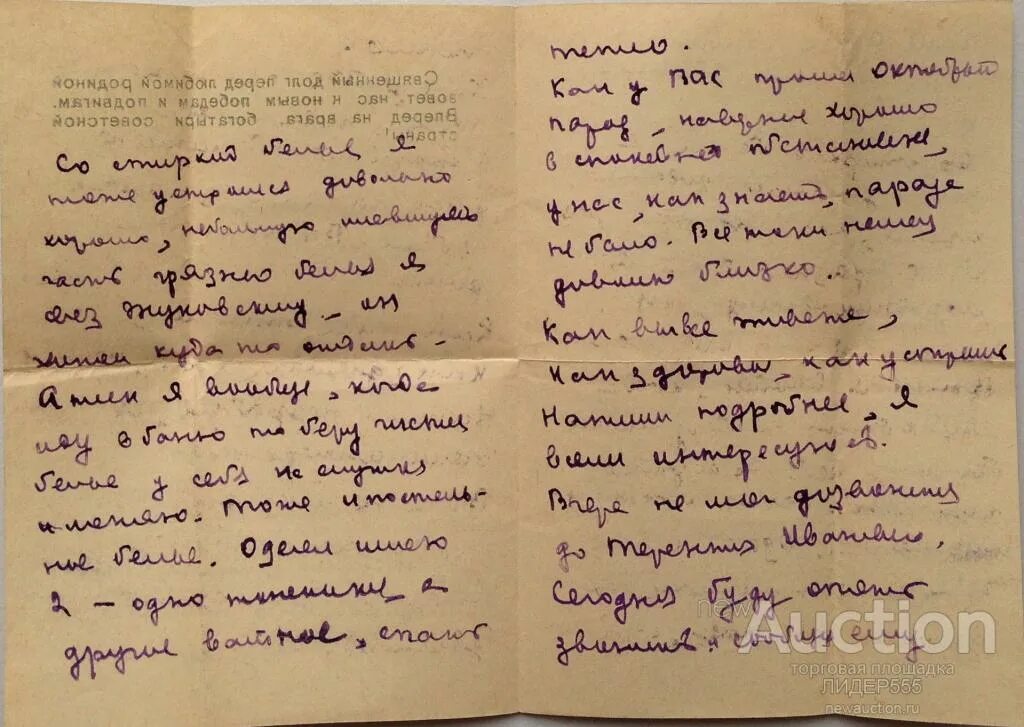 Священный долг перед любимой родиной
зовет нас к новым победам и подвигам.
Вперед на врага, богатыри советской
страны!
Со стиркой белья я
тоже устроился довольно
хорошо, небольшую
часть грязного белья я
Жуковскому, он
куда то отдает.
А так я вообще, когда
иду в баню то беру чистое
белье у себя на
и меняю. Тоже и постель-
ное белье. Одеял имею
2 — одно а
другое ватное, спать
тепло.
Как у Вас прошел Октябрьский
парад, наверное хорошо
в спокойной обстановке,
у нас, как знаете, парада
не было. Всё таки немец
довольно близко.
Как вы все живете,
как здоровье, как устроились
Напиши подробнее, я
всем интересуюсь.
Вчера не мог дозвониться
до Терентия Ивановича,
Сегодня буду опять
звонить и сообщу ему
newAuction
торговая площадка
ЛИДЕР555
newauction.ru